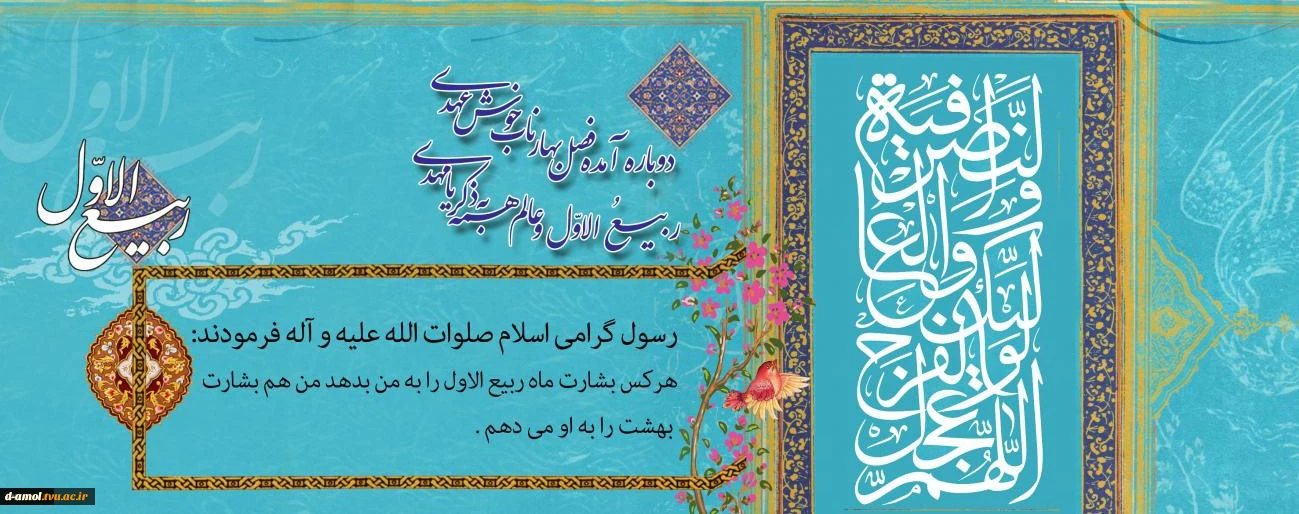 دوباره آمده فصل بهار ناب خوش عهدی
ربیعُ الاوّل و عالم همه به ذکر یا مهدی
ربیع الاوّل
رسول گرامی اسلام صلوات الله علیه و آله فرمودند:
هرکس بشارت ماه ربیع الاول را به من بدهد من هم بشارت
بهشت را به او می دهم .
اللّهمّ عجّل لولیّک الفرج والعافیة والنّصر
ربیع الاوّل
d-amol.tvu.ac.ir